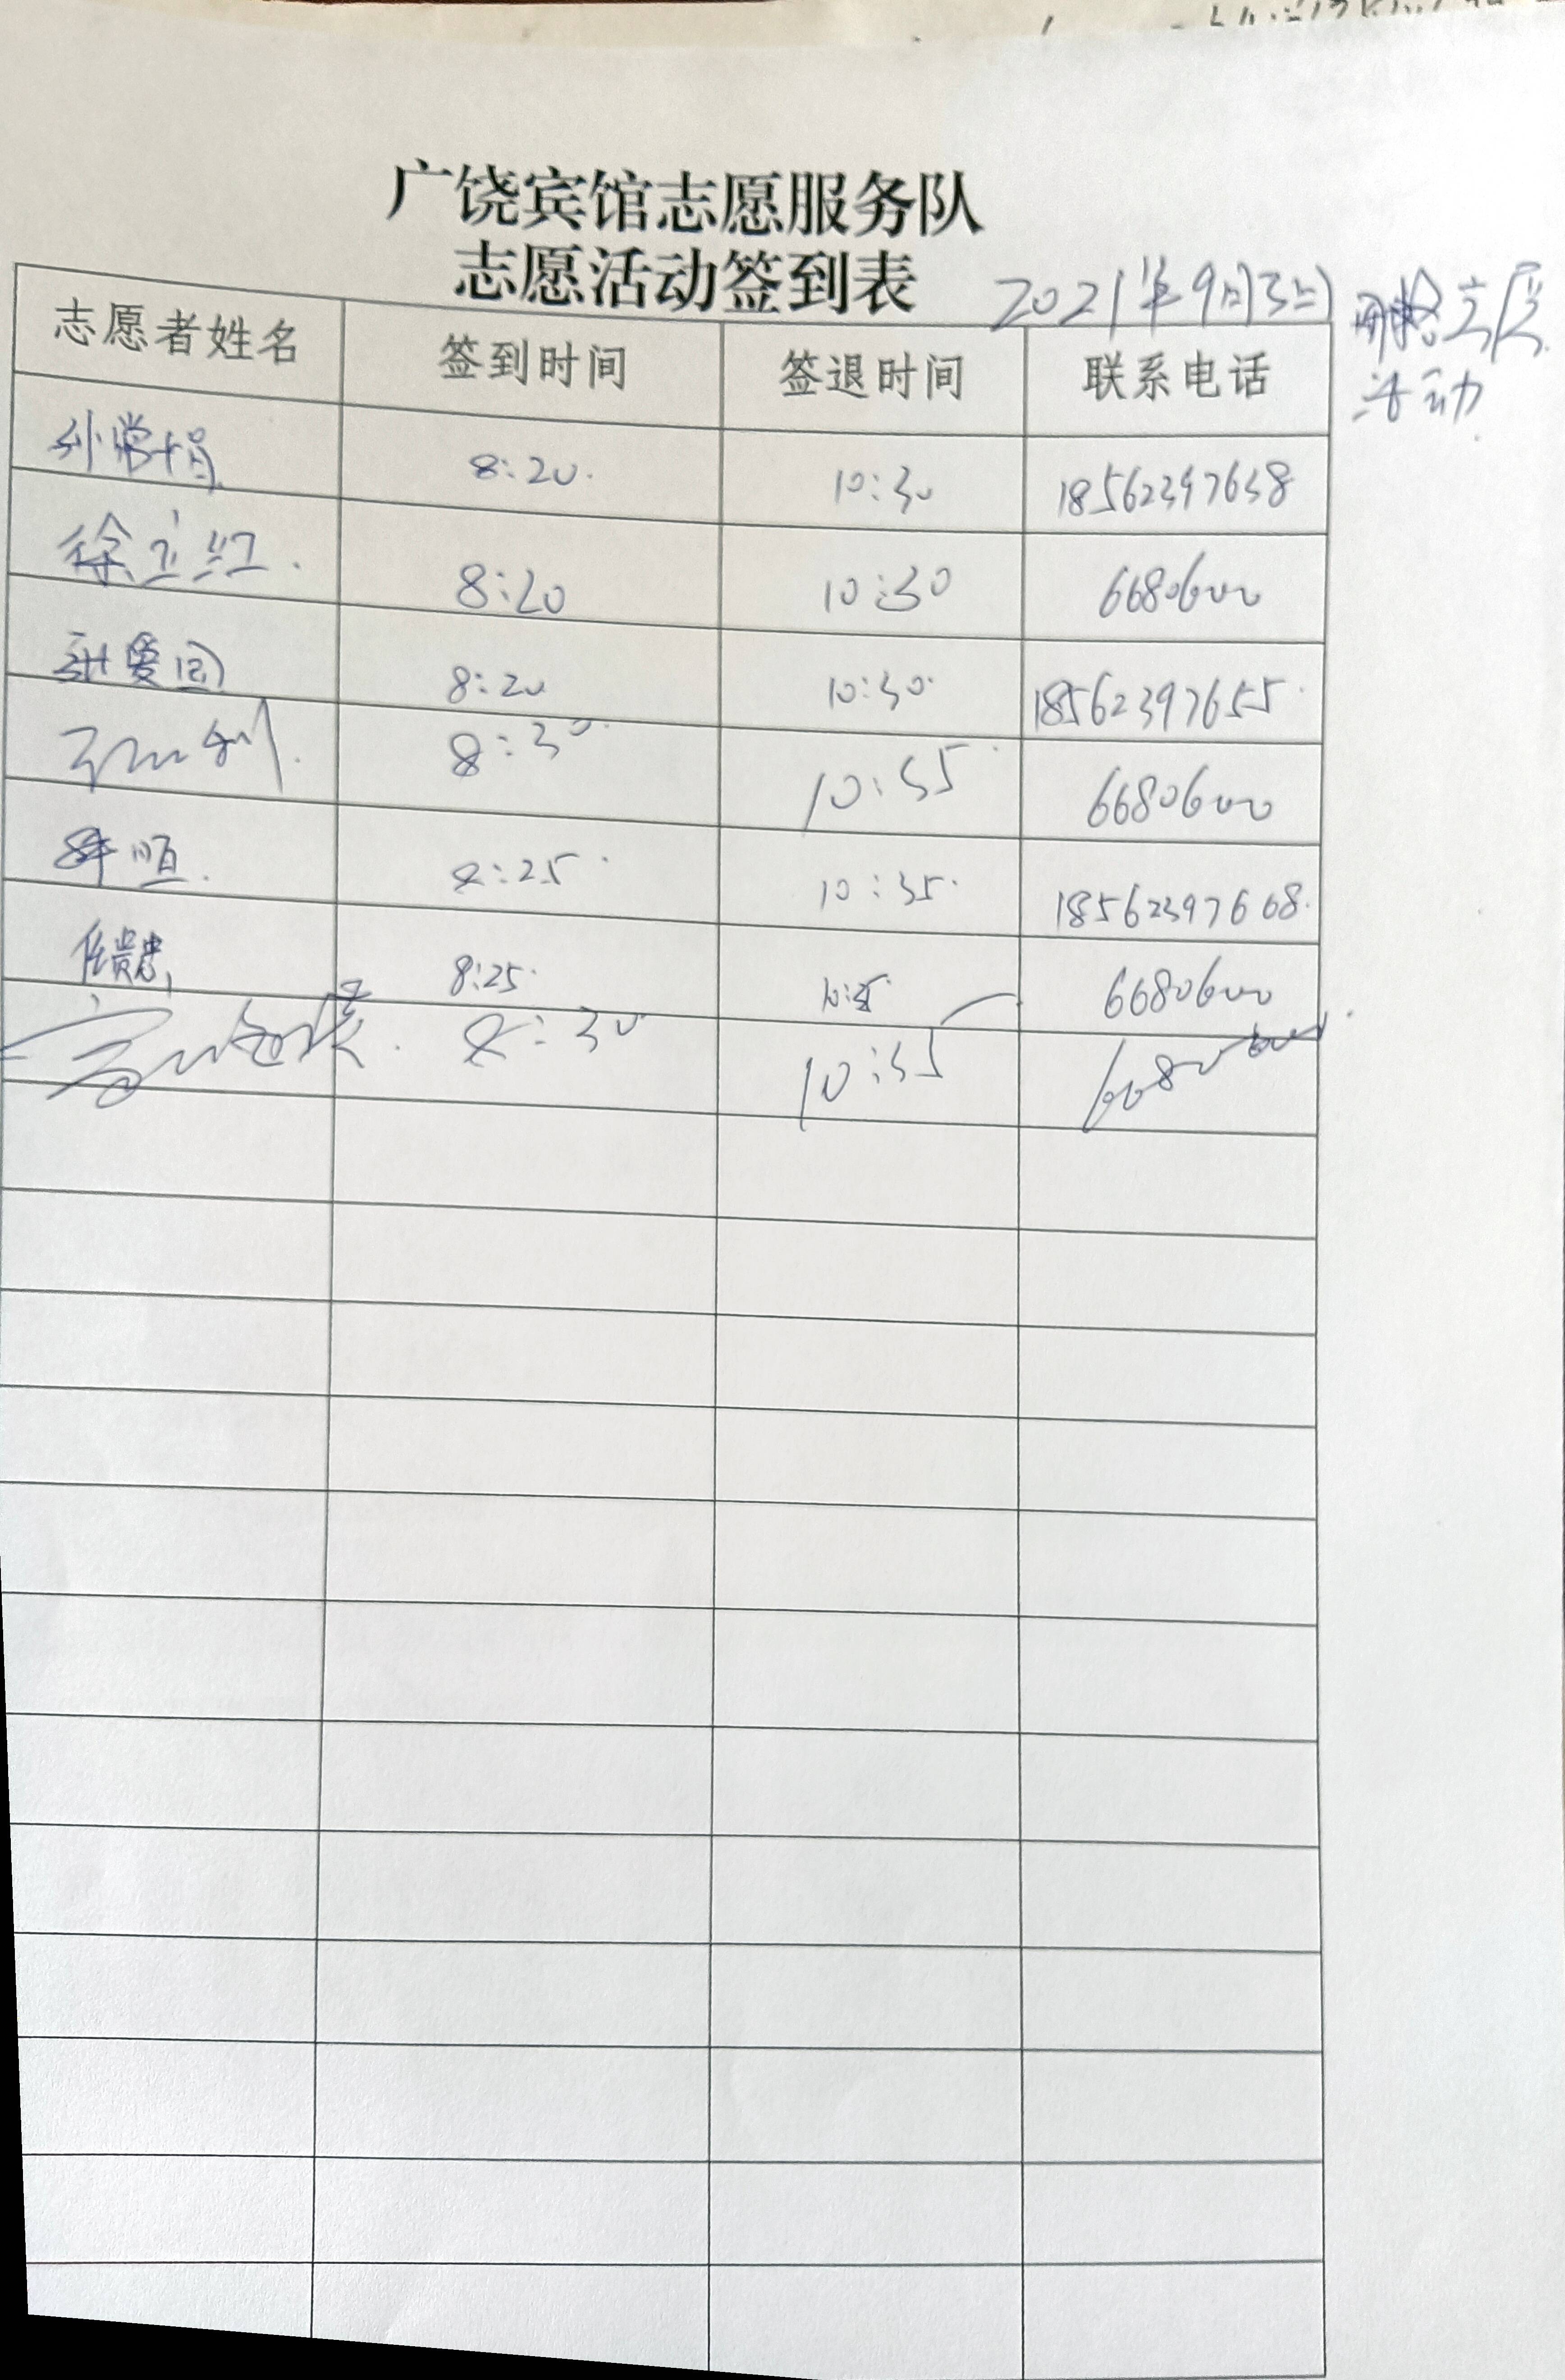 广饶宾馆志愿服务队
志愿活动签到表
2021年9月3日
活动
志愿者姓名 签到时间 签退时间 联系电话
孙常娟 8:20 10:30 18562397638
徐立红 8:20 10:30 6680600
8:20 10:30 18562397655
8:30 10:35 6680600
8:25 10:35 18562397668
任贵忠 8:25 6680600
8:30 10:35